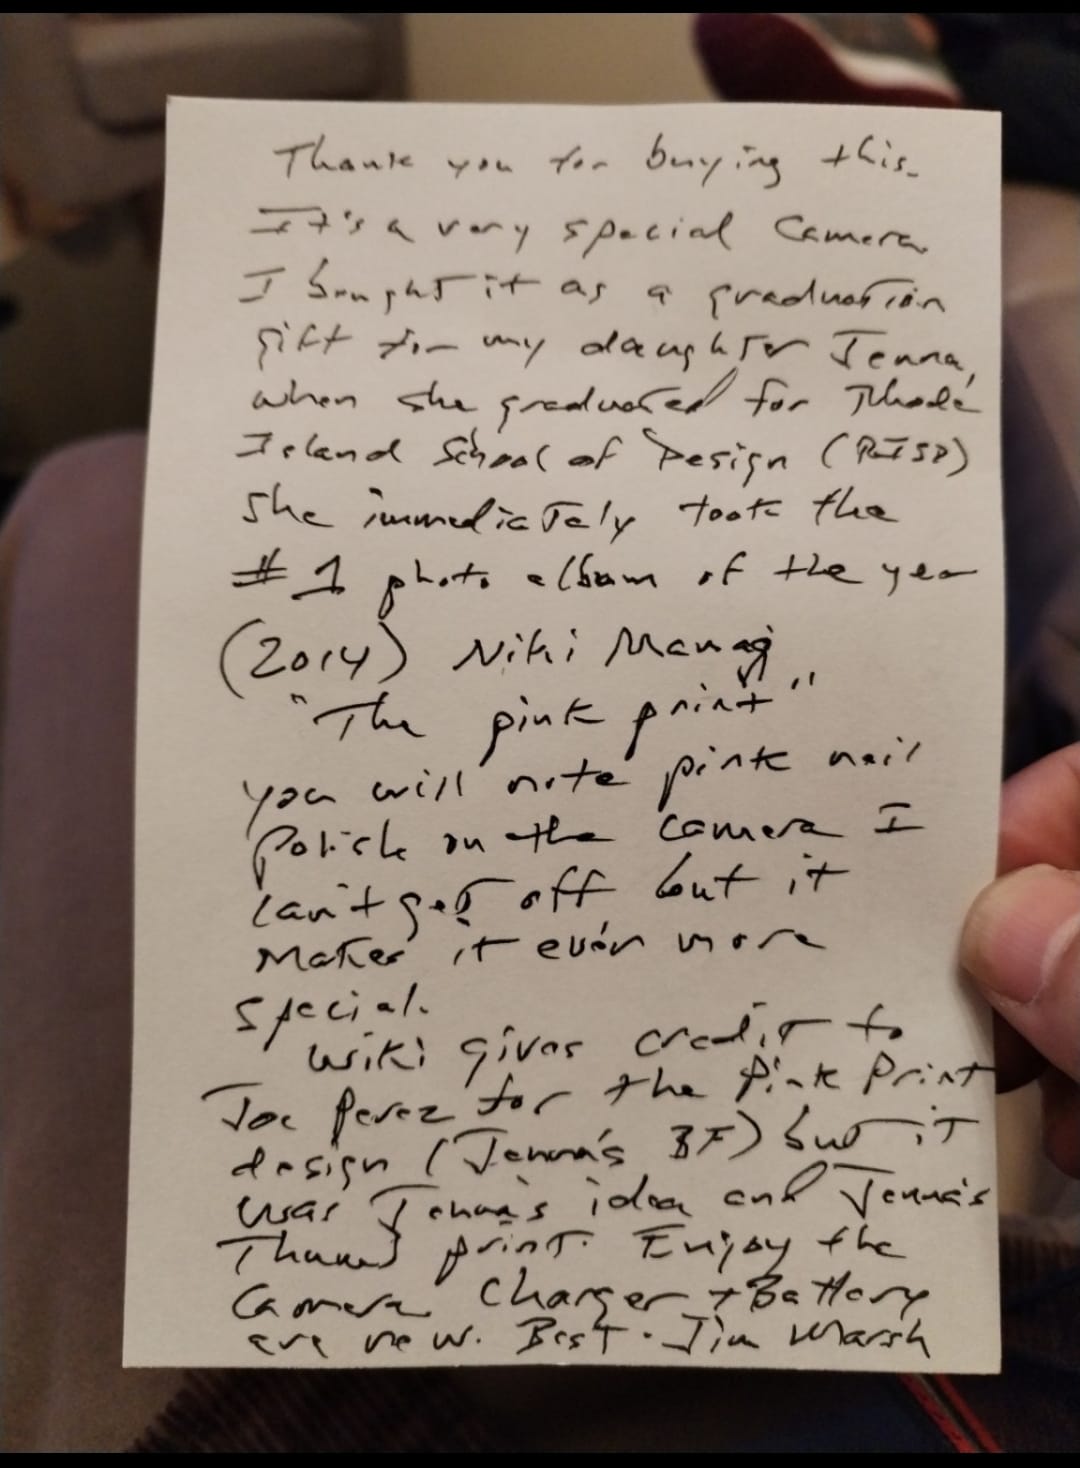 Thank you for buying this.
It's a very special Camera
I bought it as a graduation
gift for my daughter Jenna,
when she graduated for Rhode
Island School of Design (RISD)
She immediately took the
#1 photo album of the year
(2014) Niki Manaj
"The pink print"
you will note pink nail
Polish on the camera I
can't get off but it
Makes it even more
special.
Wiki gives credit to
Joe Perez for the Pink Print
design (Jenna's BF) but it
was Jenna's idea and Jenna's
Thumb print. Enjoy the
Camera Charger + Battery
are new. Best. Jim Marsh